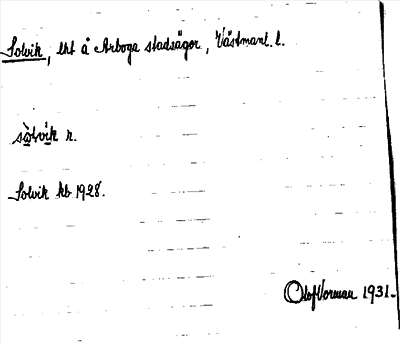 Solvik, lht å Arboga stadsägor, Västmanl. l.
sòlvìk n.
Solvik kb 1928.
Olof Norman 1931.